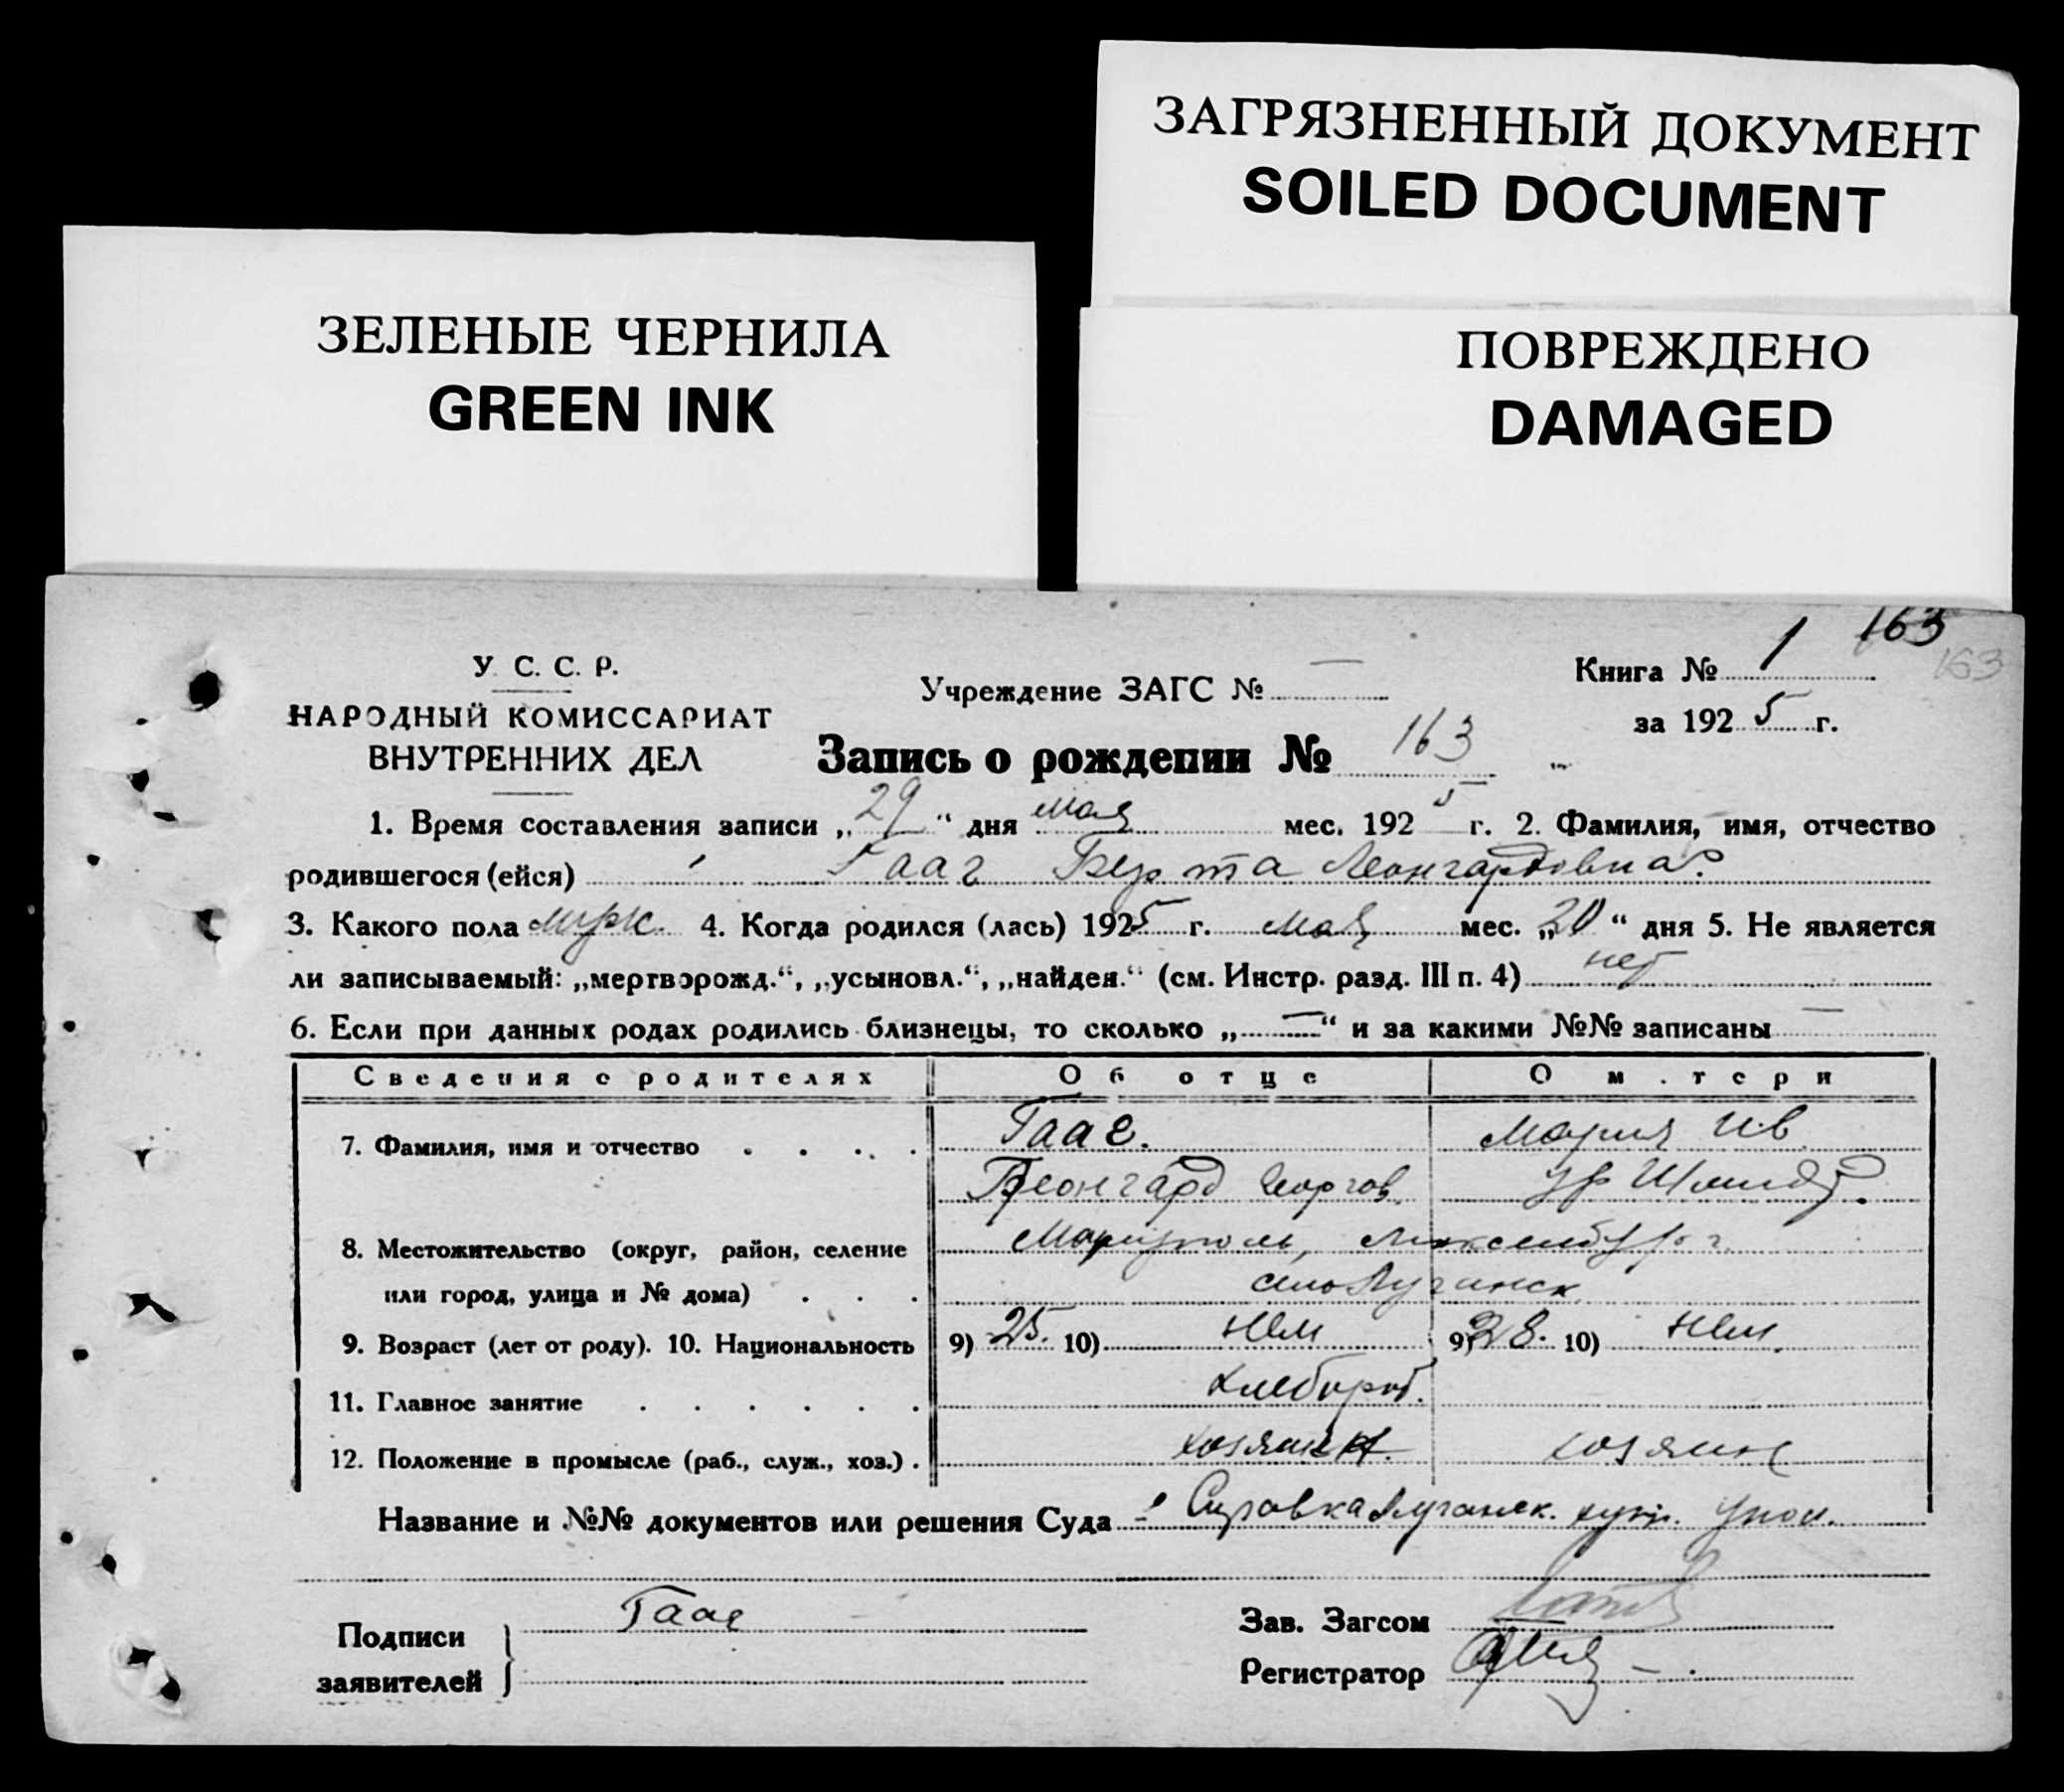 ЗАГРЯЗНЕННЫЙ ДОКУМЕНТ
SOILED DOCUMENT
ЗЕЛЕНЫЕ ЧЕРНИЛА
GREEN INK
ПОВРЕЖДЕНО
DAMAGED
163
163
У. С. С. Р.
НАРОДНЫЙ КОМИССАРИАТ
ВНУТРЕННИХ ДЕЛ
Учреждение ЗАГС № —
Книга № 1
за 1925 г.
Запись о рождении № 163
1. Время составления записи „29“ дня мая мес. 1925 г. 2. Фамилия, имя, отчество
родившегося (ейся) Гааг Берта Леонгардовна.
3. Какого пола 4. Когда родился (лась) 1925 г. мая мес. „20“ дня 5. Не является
ли записываемый: „мертворожд.“, „усыновл.“, „найден.“ (см. Инстр. разд. III п. 4) нет
6. Если при данных родах родились близнецы, то сколько „—“ и за какими №№ записаны —
Сведения о родителях Об отце О матери
7. Фамилия, имя и отчество Гааг. Мария Ив.
Леонгард Георгов. ур Шмидт.
8. Местожительство (округ, район, селение Мариуполь, Люксембург.
или город, улица и № дома) село Луганск.
9. Возраст (лет от роду). 10. Национальность 9) 25. 10) нем 9) 28. 10) нем.
11. Главное занятие хлебороб.
12. Положение в промысле (раб., служ., хоз.) хозяин. хозяин
Название и №№ документов или решения Суда Справка Луганск. Упол.
Подписи заявителей Гааг
Зав. Загсом
Регистратор